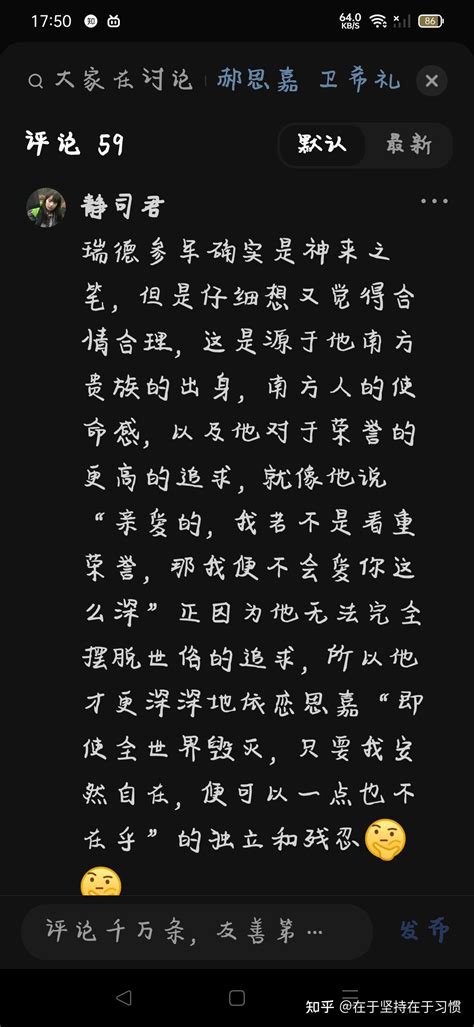 17:50 知 64.0 KB/S 86
大家在讨论 郝思嘉 卫希礼
评论 59 默认 最新
静司君
瑞德参军确实是神来之
笔，但是仔细想又觉得合
情合理，这是源于他南方
贵族的出身，南方人的使
命感，以及他对于荣誉的
更高的追求，就像他说
“亲爱的，我若不是看重
荣誉，那我便不会爱你这
么深”正因为他无法完全
摆脱世俗的追求，所以他
才更深深地依恋思嘉“即
使全世界毁灭，只要我安
然自在，便可以一点也不
在乎”的独立和残忍🤔
🤔
评论千万条，友善第…
发布
知乎 @在于坚持在于习惯